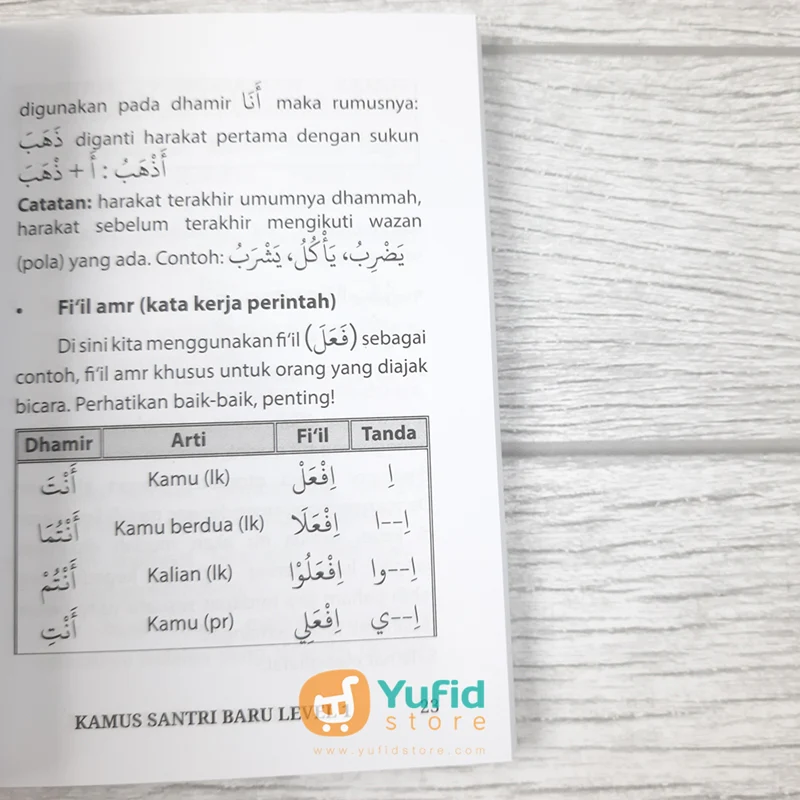 digunakan pada dhamir أَنَا maka rumusnya:
ذَهَبَ diganti harakat pertama dengan sukun
أَذْهَبُ : أَ + ذْهَبَ
Catatan: harakat terakhir umumnya dhammah,
harakat sebelum terakhir mengikuti wazan
(pola) yang ada. Contoh: يَضْرِبُ، يَأْكُلُ، يَشْرَبُ
• Fi‘il amr (kata kerja perintah)
Di sini kita menggunakan fi‘il (فَعَلَ) sebagai
contoh, fi‘il amr khusus untuk orang yang diajak
bicara. Perhatikan baik-baik, penting!
Dhamir Arti Fi‘il Tanda
أَنْتَ Kamu (lk) اِفْعَلْ اِ
أَنْتُمَا Kamu berdua (lk) اِفْعَلَا اِ--ا
أَنْتُمْ Kalian (lk) اِفْعَلُوْا اِ--وا
أَنْتِ Kamu (pr) اِفْعَلِي اِ--ي
KAMUS SANTRI BARU LEVEL 1 23
Yufid
store
www.yufidstore.com